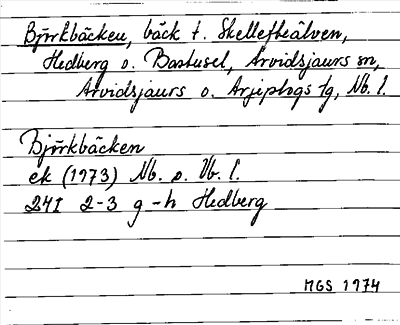 Björkbäcken, bäck t. Skellefteälven,
Hedberg o. Bastusel, Arvidsjaurs sn,
Arvidsjaurs o. Arjeplogs tg, Nb. l.
Björkbäcken
ek (1973) Nb. o. Vb. l.
24I 2-3 g-h Hedberg
MGS 1974